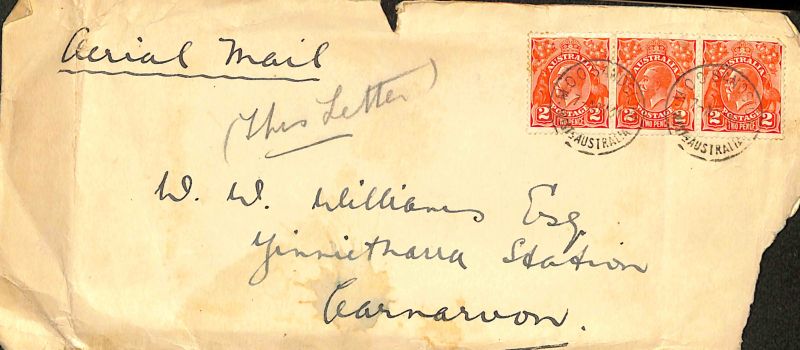 Aerial Mail
(This Letter)
W. W. Williams Esq.
Yinnietharra Station
Carnarvon.
AUSTRALIA
2 POSTAGE 2
TWO PENCE
AUSTRALIA
2 POSTAGE 2
TWO PENCE
AUSTRALIA
2 POSTAGE 2
TWO PENCE
AUSTRALIA
AUSTRALIA